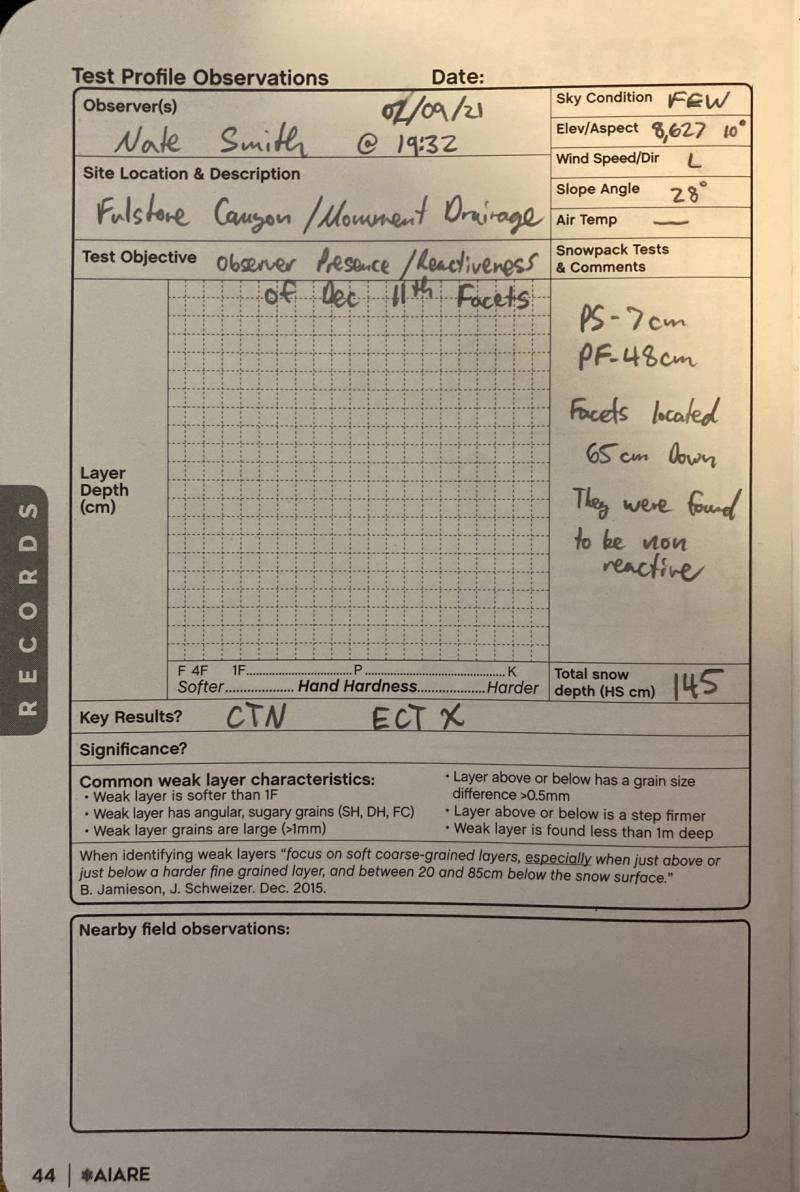 Test Profile Observations Date:
Observer(s) 02/09/21
Nate Smith @ 19:32
Sky Condition FEW
Elev/Aspect 8,627 10°
Wind Speed/Dir L
Slope Angle 28°
Air Temp —
Site Location & Description
Fulstone Canyon / Monument Drainage
Test Objective Observer Presence / Reactiveness
of Dec 11th Facets
Snowpack Tests
& Comments
PS - 7cm
PF - 48cm
Facets located
65 cm Down
They were found
to be non
reactive
Layer
Depth
(cm)
F 4F 1F..............................P........................................K
Softer.................... Hand Hardness...................Harder
Total snow
depth (HS cm) 145
Key Results? CTN ECT X
Significance?
Common weak layer characteristics:
• Weak layer is softer than 1F
• Weak layer has angular, sugary grains (SH, DH, FC)
• Weak layer grains are large (>1mm)
• Layer above or below has a grain size
difference >0.5mm
• Layer above or below is a step firmer
• Weak layer is found less than 1m deep
When identifying weak layers "focus on soft coarse-grained layers, especially when just above or
just below a harder fine grained layer, and between 20 and 85cm below the snow surface."
B. Jamieson, J. Schweizer. Dec. 2015.
Nearby field observations:
RECORDS
44 | AIARE